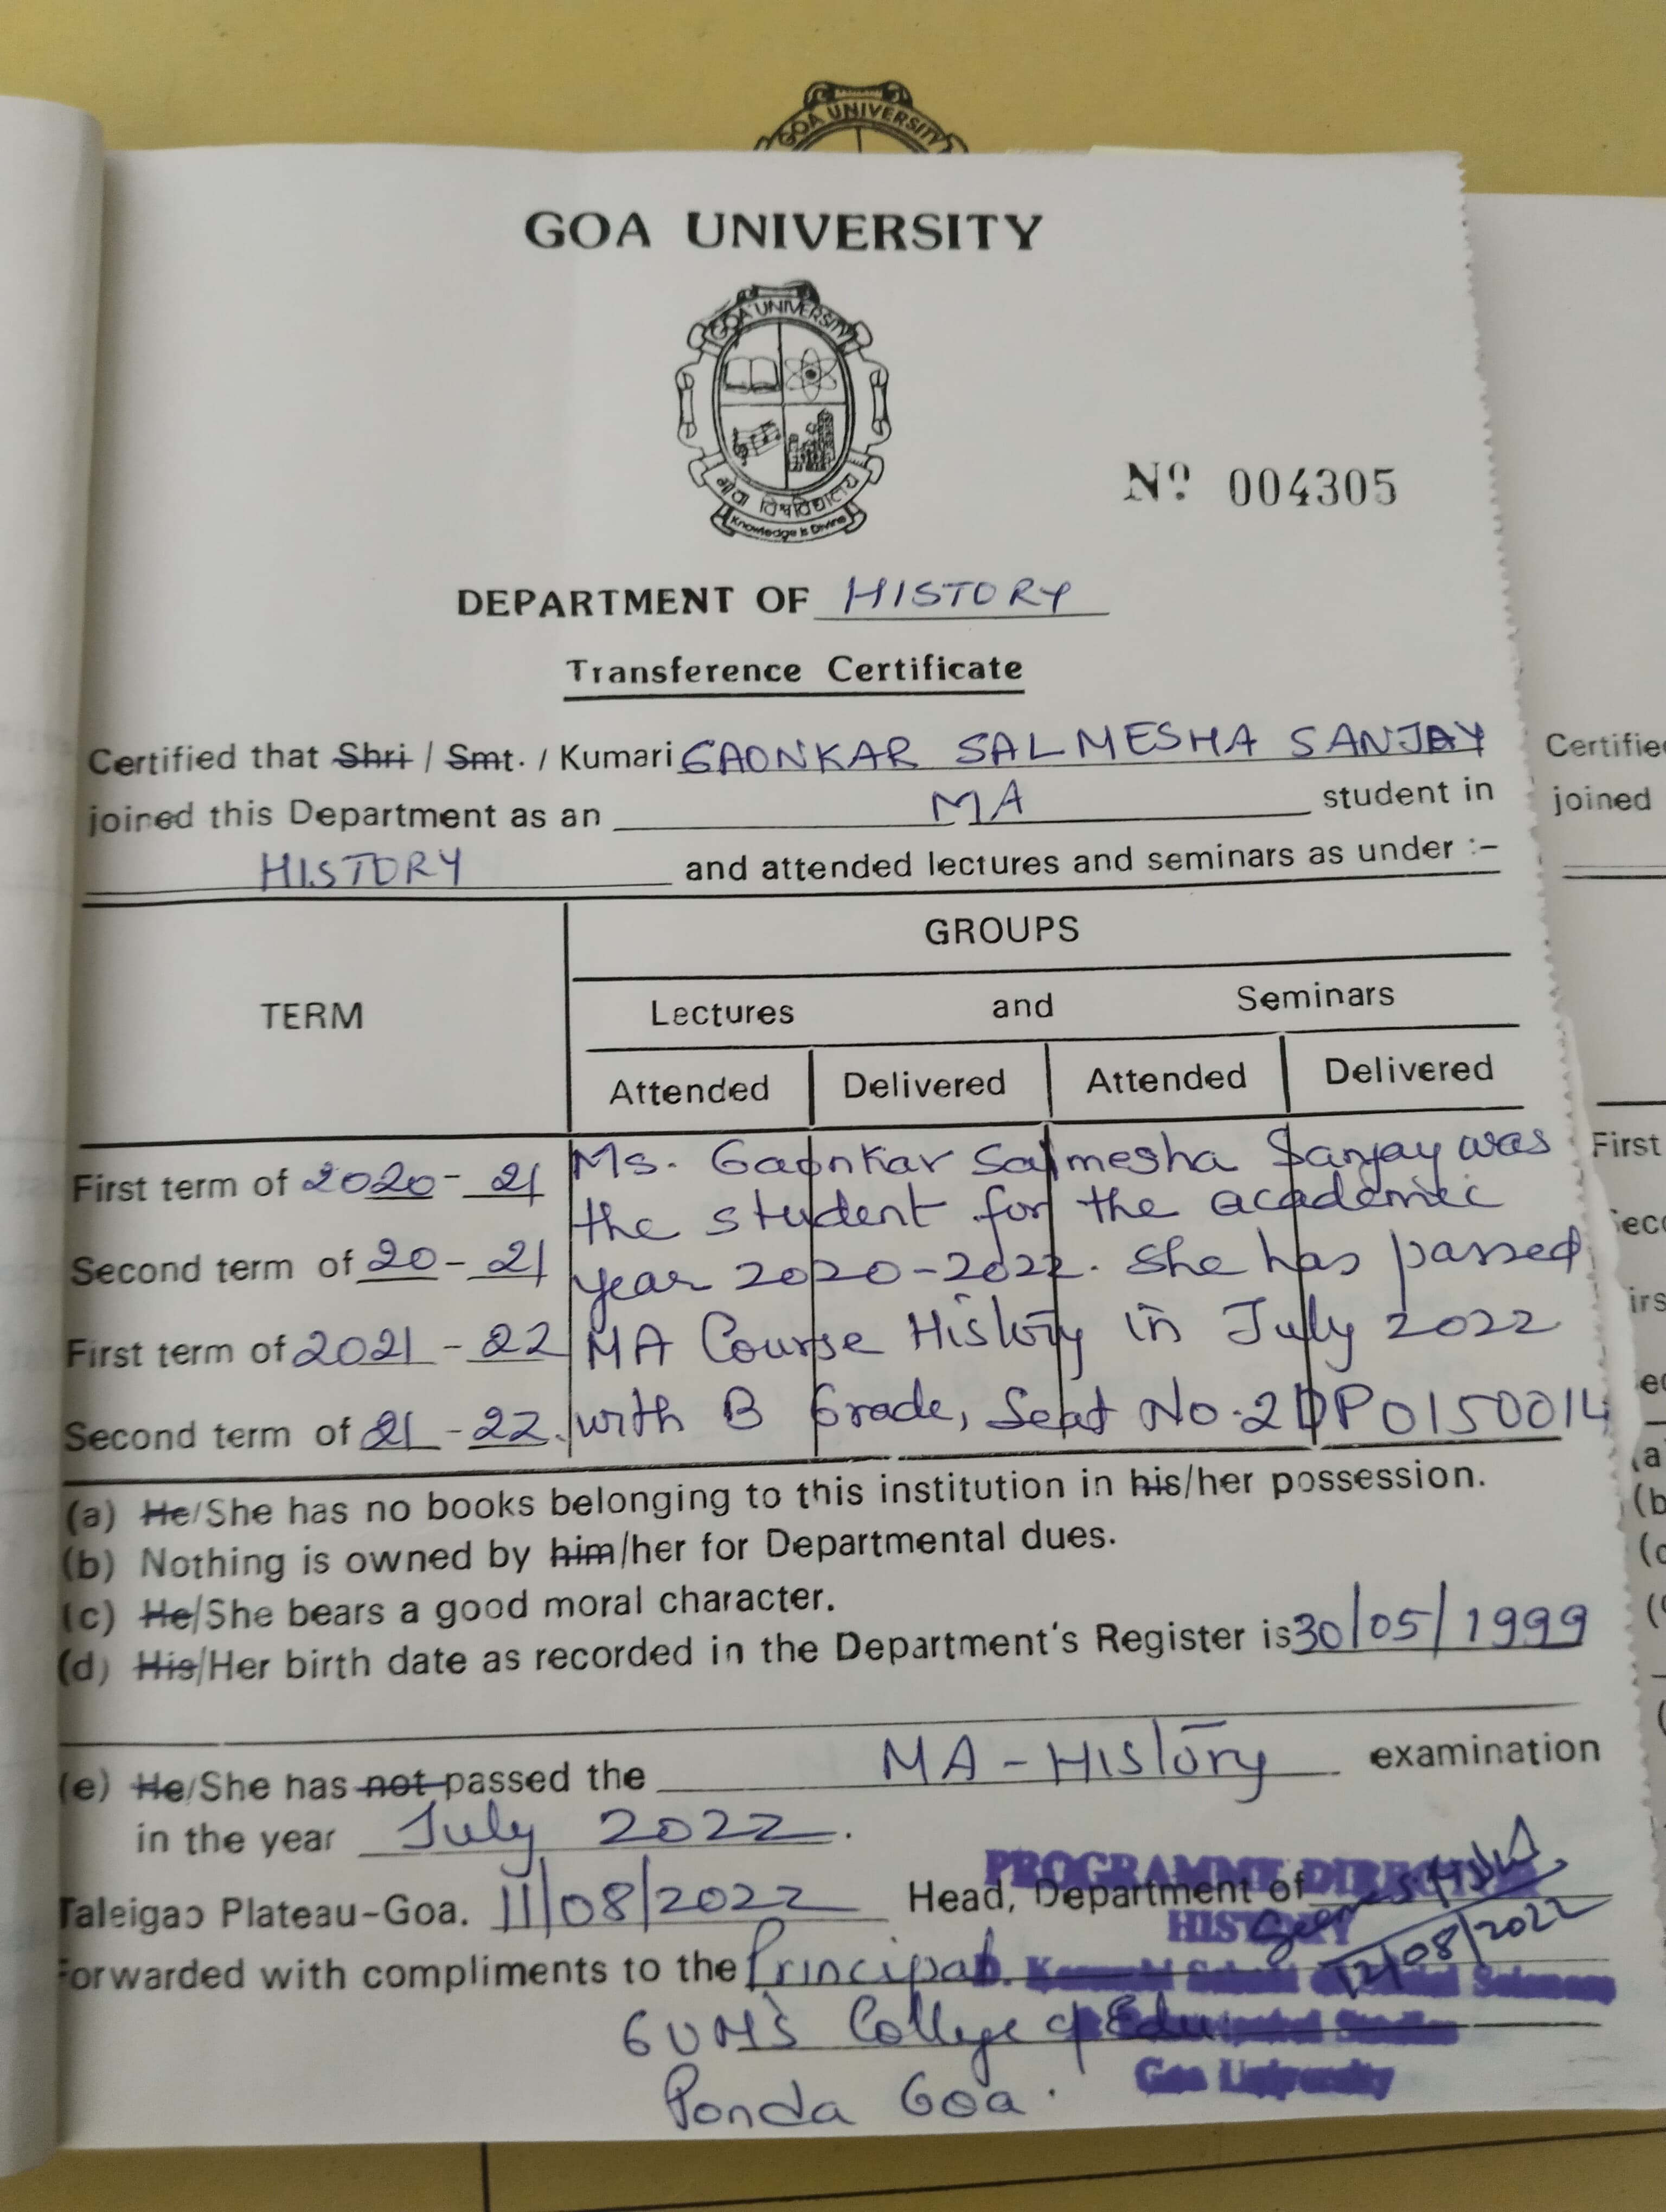 GOA UNIVERSITY
GOA UNIVERSITY
GOA UNIVERSITY
गोवा विश्वविद्यालय
Knowledge is Divine
Nº 004305
DEPARTMENT OF HISTORY
Transference Certificate
Certified that Shri / Smt. / Kumari GAONKAR SALMESHA SANJAY
joined this Department as an MA student in
HISTORY and attended lectures and seminars as under :-
TERM
GROUPS
Lectures and Seminars
Attended Delivered Attended Delivered
First term of 2020-21
Second term of 20-21
First term of 2021-22
Second term of 21-22.
Ms. Gaonkar Salmesha Sanjay was
the student for the academic
year 2020-2022. She has passed
MA Course History in July 2022
with B Grade, Seat No. 2DP0150014
(a) He/She has no books belonging to this institution in his/her possession.
(b) Nothing is owned by him/her for Departmental dues.
(c) He/She bears a good moral character.
(d) His/Her birth date as recorded in the Department's Register is 30/05/1999
(e) He/She has not passed the MA-History examination
in the year July 2022.
PROGRAMME DIRECTOR
Taleigao Plateau-Goa. 11/08/2022 Head, Department of
HISTORY
12/08/2022
Forwarded with compliments to the Principal
GVM'S College of Edu.
Goa University
Ponda Goa.
Certifie
joined
First
(a)
(b
(c